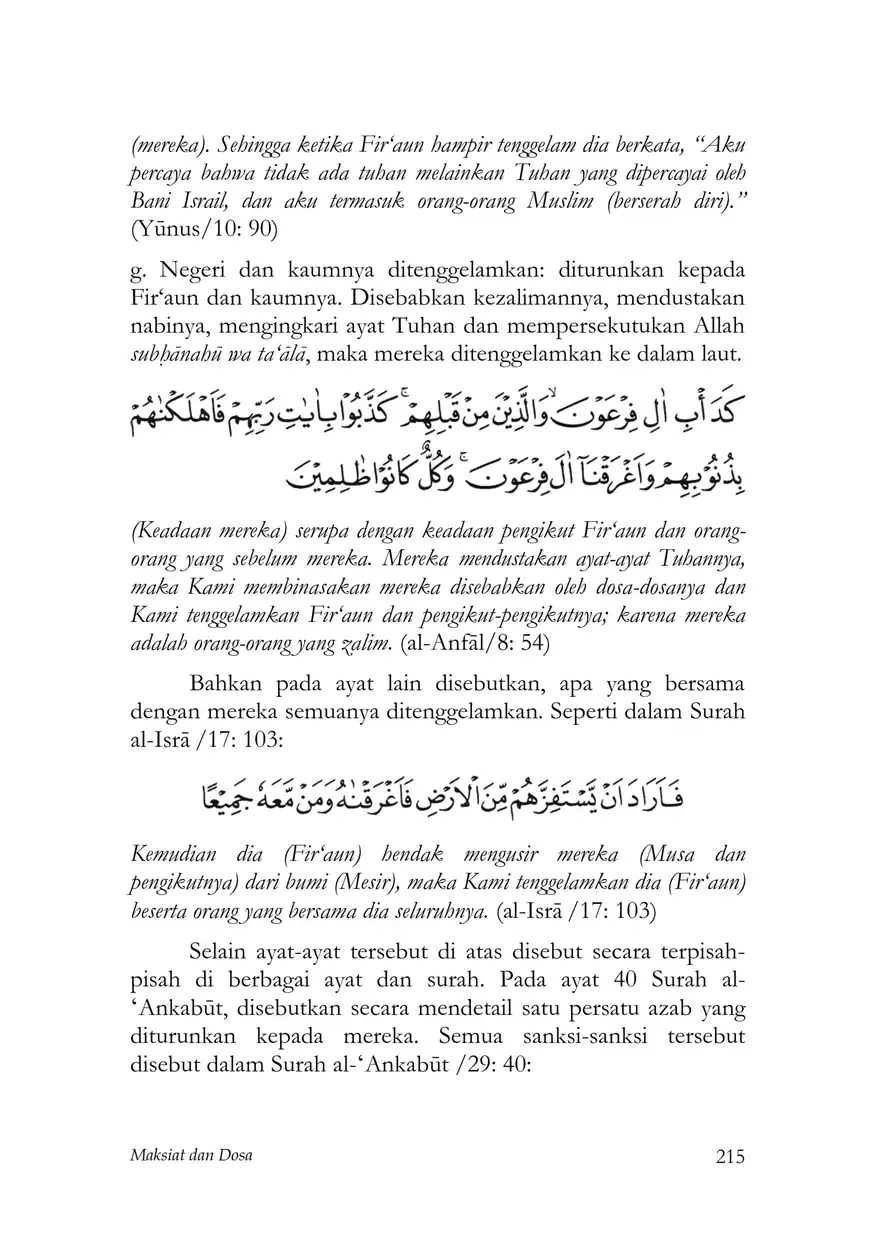 (mereka). Sehingga ketika Fir‘aun hampir tenggelam dia berkata, “Aku
percaya bahwa tidak ada tuhan melainkan Tuhan yang dipercayai oleh
Bani Israil, dan aku termasuk orang-orang Muslim (berserah diri).”
(Yūnus/10: 90)
g. Negeri dan kaumnya ditenggelamkan: diturunkan kepada
Fir‘aun dan kaumnya. Disebabkan kezalimannya, mendustakan
nabinya, mengingkari ayat Tuhan dan mempersekutukan Allah
subḥānahū wa ta‘ālā, maka mereka ditenggelamkan ke dalam laut.
كَدَأْبِ اٰلِ فِرْعَوْنَۙ وَالَّذِيْنَ مِنْ قَبْلِهِمْۚ كَذَّبُوْا بِاٰيٰتِ رَبِّهِمْ فَاَهْلَكْنٰهُمْ
بِذُنُوْبِهِمْ وَاَغْرَقْنَآ اٰلَ فِرْعَوْنَۚ وَكُلٌّ كَانُوْا ظٰلِمِيْنَ
(Keadaan mereka) serupa dengan keadaan pengikut Fir‘aun dan orang-
orang yang sebelum mereka. Mereka mendustakan ayat-ayat Tuhannya,
maka Kami membinasakan mereka disebabkan oleh dosa-dosanya dan
Kami tenggelamkan Fir‘aun dan pengikut-pengikutnya; karena mereka
adalah orang-orang yang zalim. (al-Anfāl/8: 54)
Bahkan pada ayat lain disebutkan, apa yang bersama
dengan mereka semuanya ditenggelamkan. Seperti dalam Surah
al-Isrā /17: 103:
فَاَرَادَ اَنْ يَّسْتَفِزَّهُمْ مِّنَ الْاَرْضِ فَاَغْرَقْنٰهُ وَمَنْ مَّعَهٗ جَمِيْعًا
Kemudian dia (Fir‘aun) hendak mengusir mereka (Musa dan
pengikutnya) dari bumi (Mesir), maka Kami tenggelamkan dia (Fir‘aun)
beserta orang yang bersama dia seluruhnya. (al-Isrā /17: 103)
Selain ayat-ayat tersebut di atas disebut secara terpisah-
pisah di berbagai ayat dan surah. Pada ayat 40 Surah al-
‘Ankabūt, disebutkan secara mendetail satu persatu azab yang
diturunkan kepada mereka. Semua sanksi-sanksi tersebut
disebut dalam Surah al-‘Ankabūt /29: 40:
Maksiat dan Dosa 215